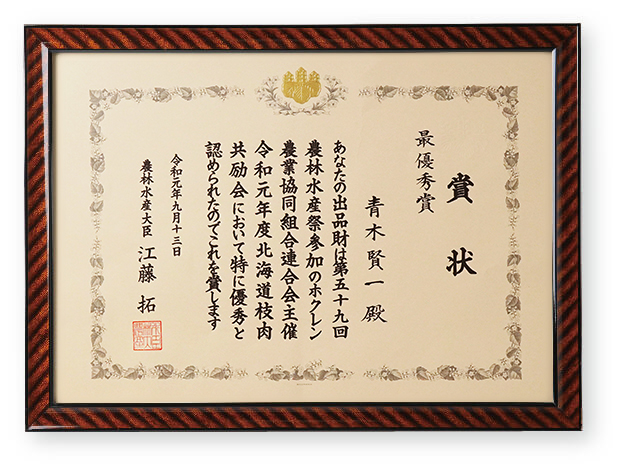 賞状
最優秀賞
青木賢一殿
あなたの出品財は第五十九回
農林水産祭参加のホクレン
農業協同組合連合会主催
令和元年度北海道枝肉
共励会において特に優秀と
認められたのでこれを賞します
令和元年九月十三日
農林水産大臣 江藤 拓